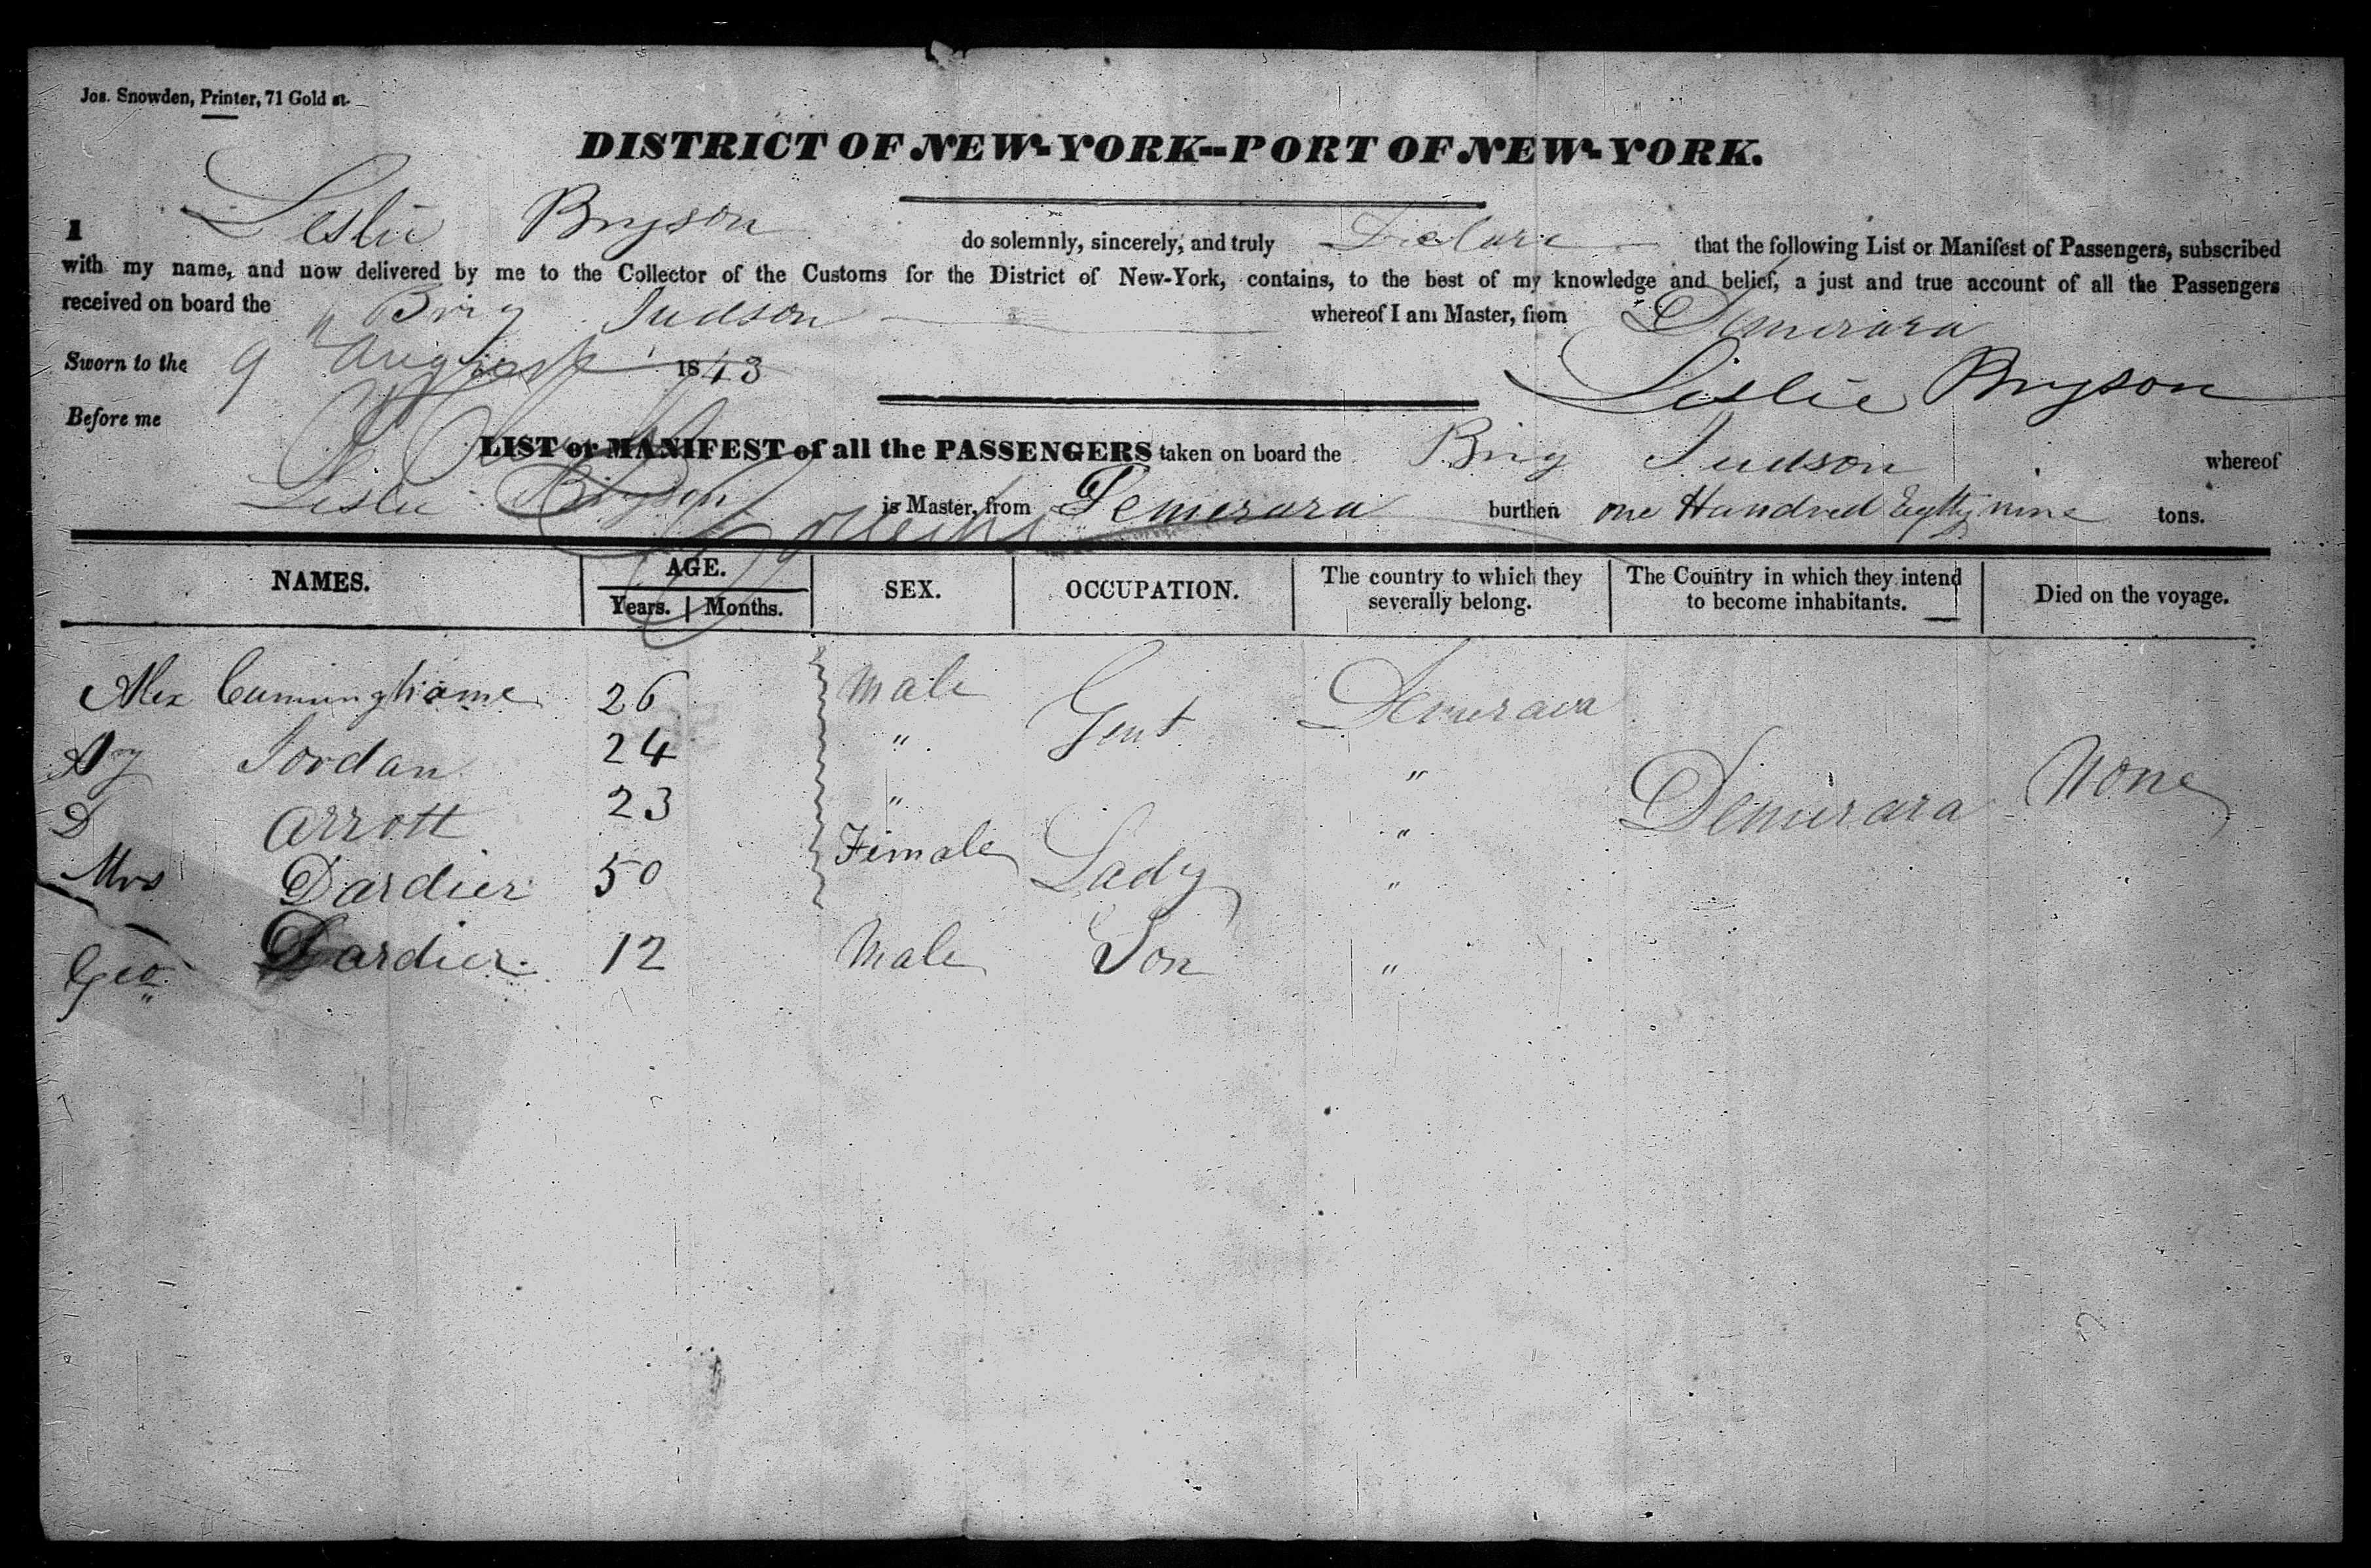 Jos. Snowden, Printer, 71 Gold st.
DISTRICT OF NEW-YORK--PORT OF NEW-YORK.
I Leslie Bryson do solemnly, sincerely, and truly Declare that the following List or Manifest of Passengers, subscribed
with my name, and now delivered by me to the Collector of the Customs for the District of New-York, contains, to the best of my knowledge and belief, a just and true account of all the Passengers
received on board the Brig Judson whereof I am Master, from Demerara
Sworn to the 9 August 1843
Leslie Bryson
Before me
LIST or MANIFEST of all the PASSENGERS taken on board the Brig Judson whereof
Leslie Bryson is Master, from Demerara burthen one Hundred Eighty nine tons.
NAMES. AGE. SEX. OCCUPATION. The country to which they severally belong. The Country in which they intend to become inhabitants. Died on the voyage.
Years. Months.
Alex Cunninghame 26 Male Gent Demerara
Jordan 24 " "
D Arrott 23 " " Demerara None
Mrs Dardier 50 Female Lady "
Geo. Dardier 12 Male Son "